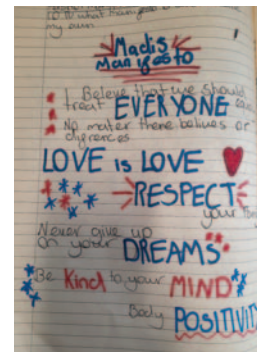 my own
Madis
Manifesto
I Beleve that we should
treat EVERYONE
No mater there belives or
LOVE is LOVE
RESPECT
your
Never give up
on your DREAMS
Be Kind to your MIND
Body POSITIVIT